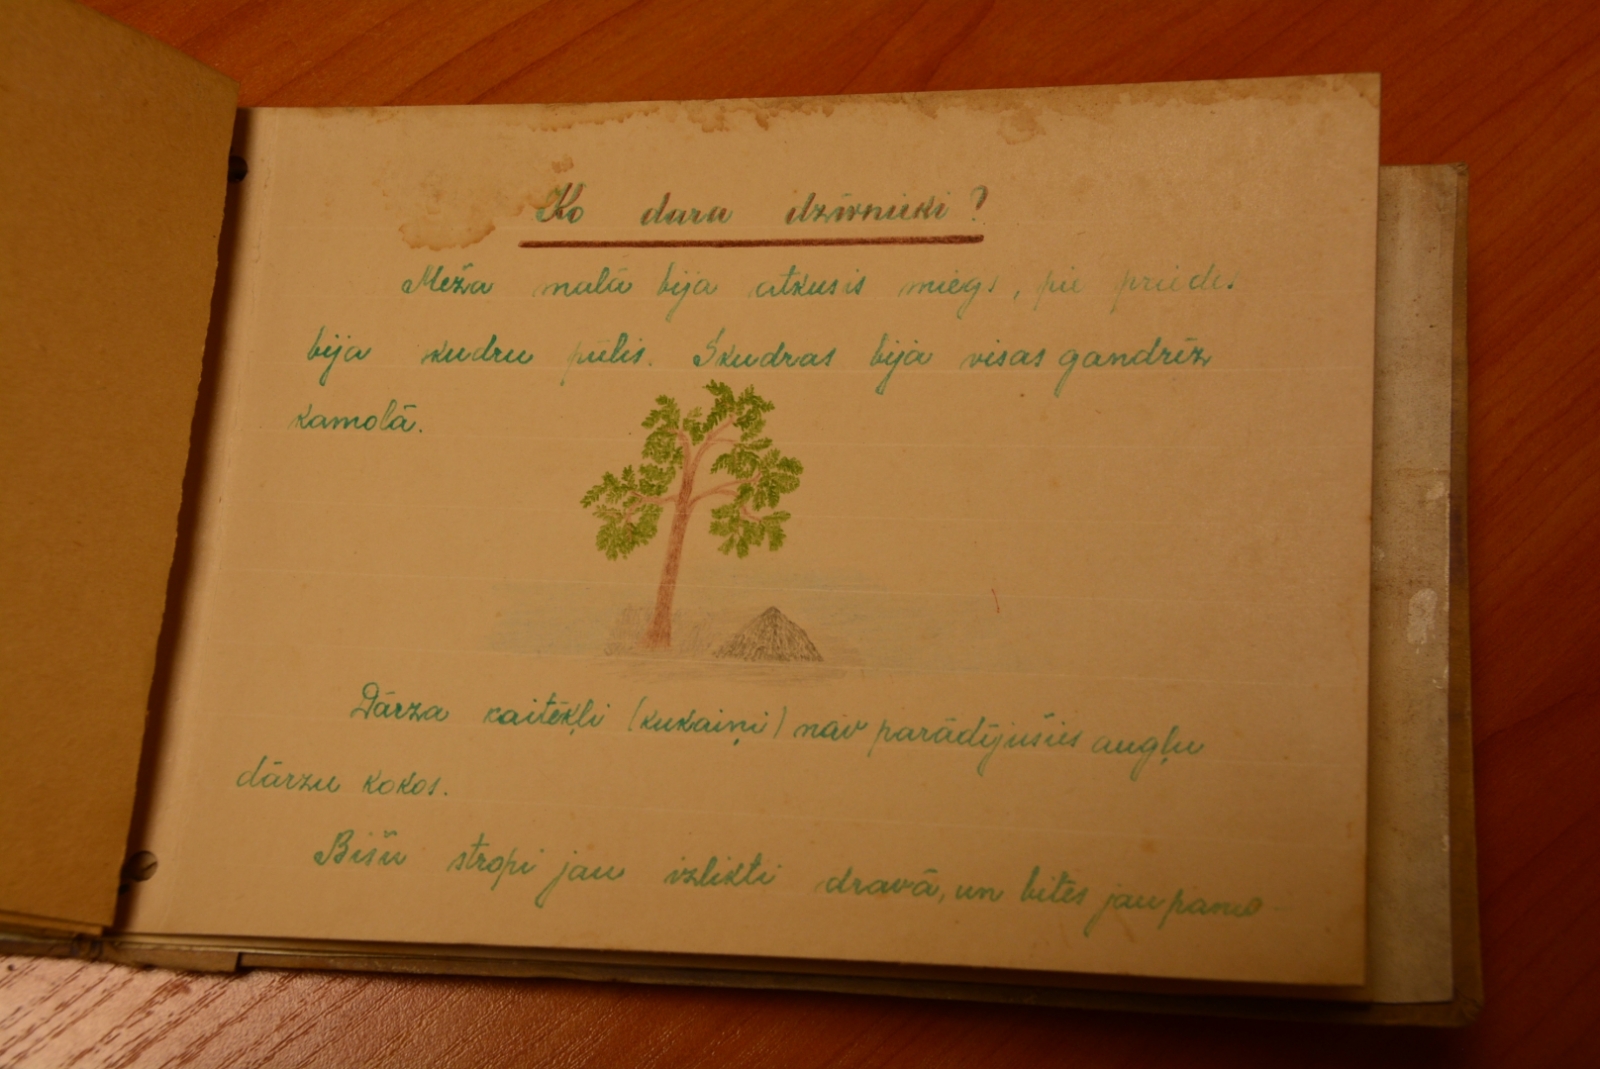 Ko dara dzīvnieki?
Meža malā bija atkusis miegs, pie priedes
bija skudru pūlis. Skudras bija visas gandrīz
kamolā.
Dārza kaitēkļi (kukaiņi) nav parādījušies augļu
dārzu kokos.
Bišu stropi jau izlikti dravā, un bites jau pamo-